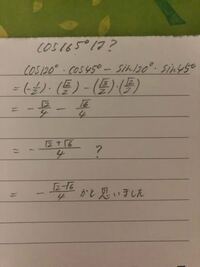 cos165°は?
cos120°・cos45° − sin120°・sin45°
= (-1/2)・(√2/2) − (√3/2)・(√2/2)
= − √2/4 − √6/4
= − (√2+√6)/4 ?
= − (√2-√6)/4 かと思いました